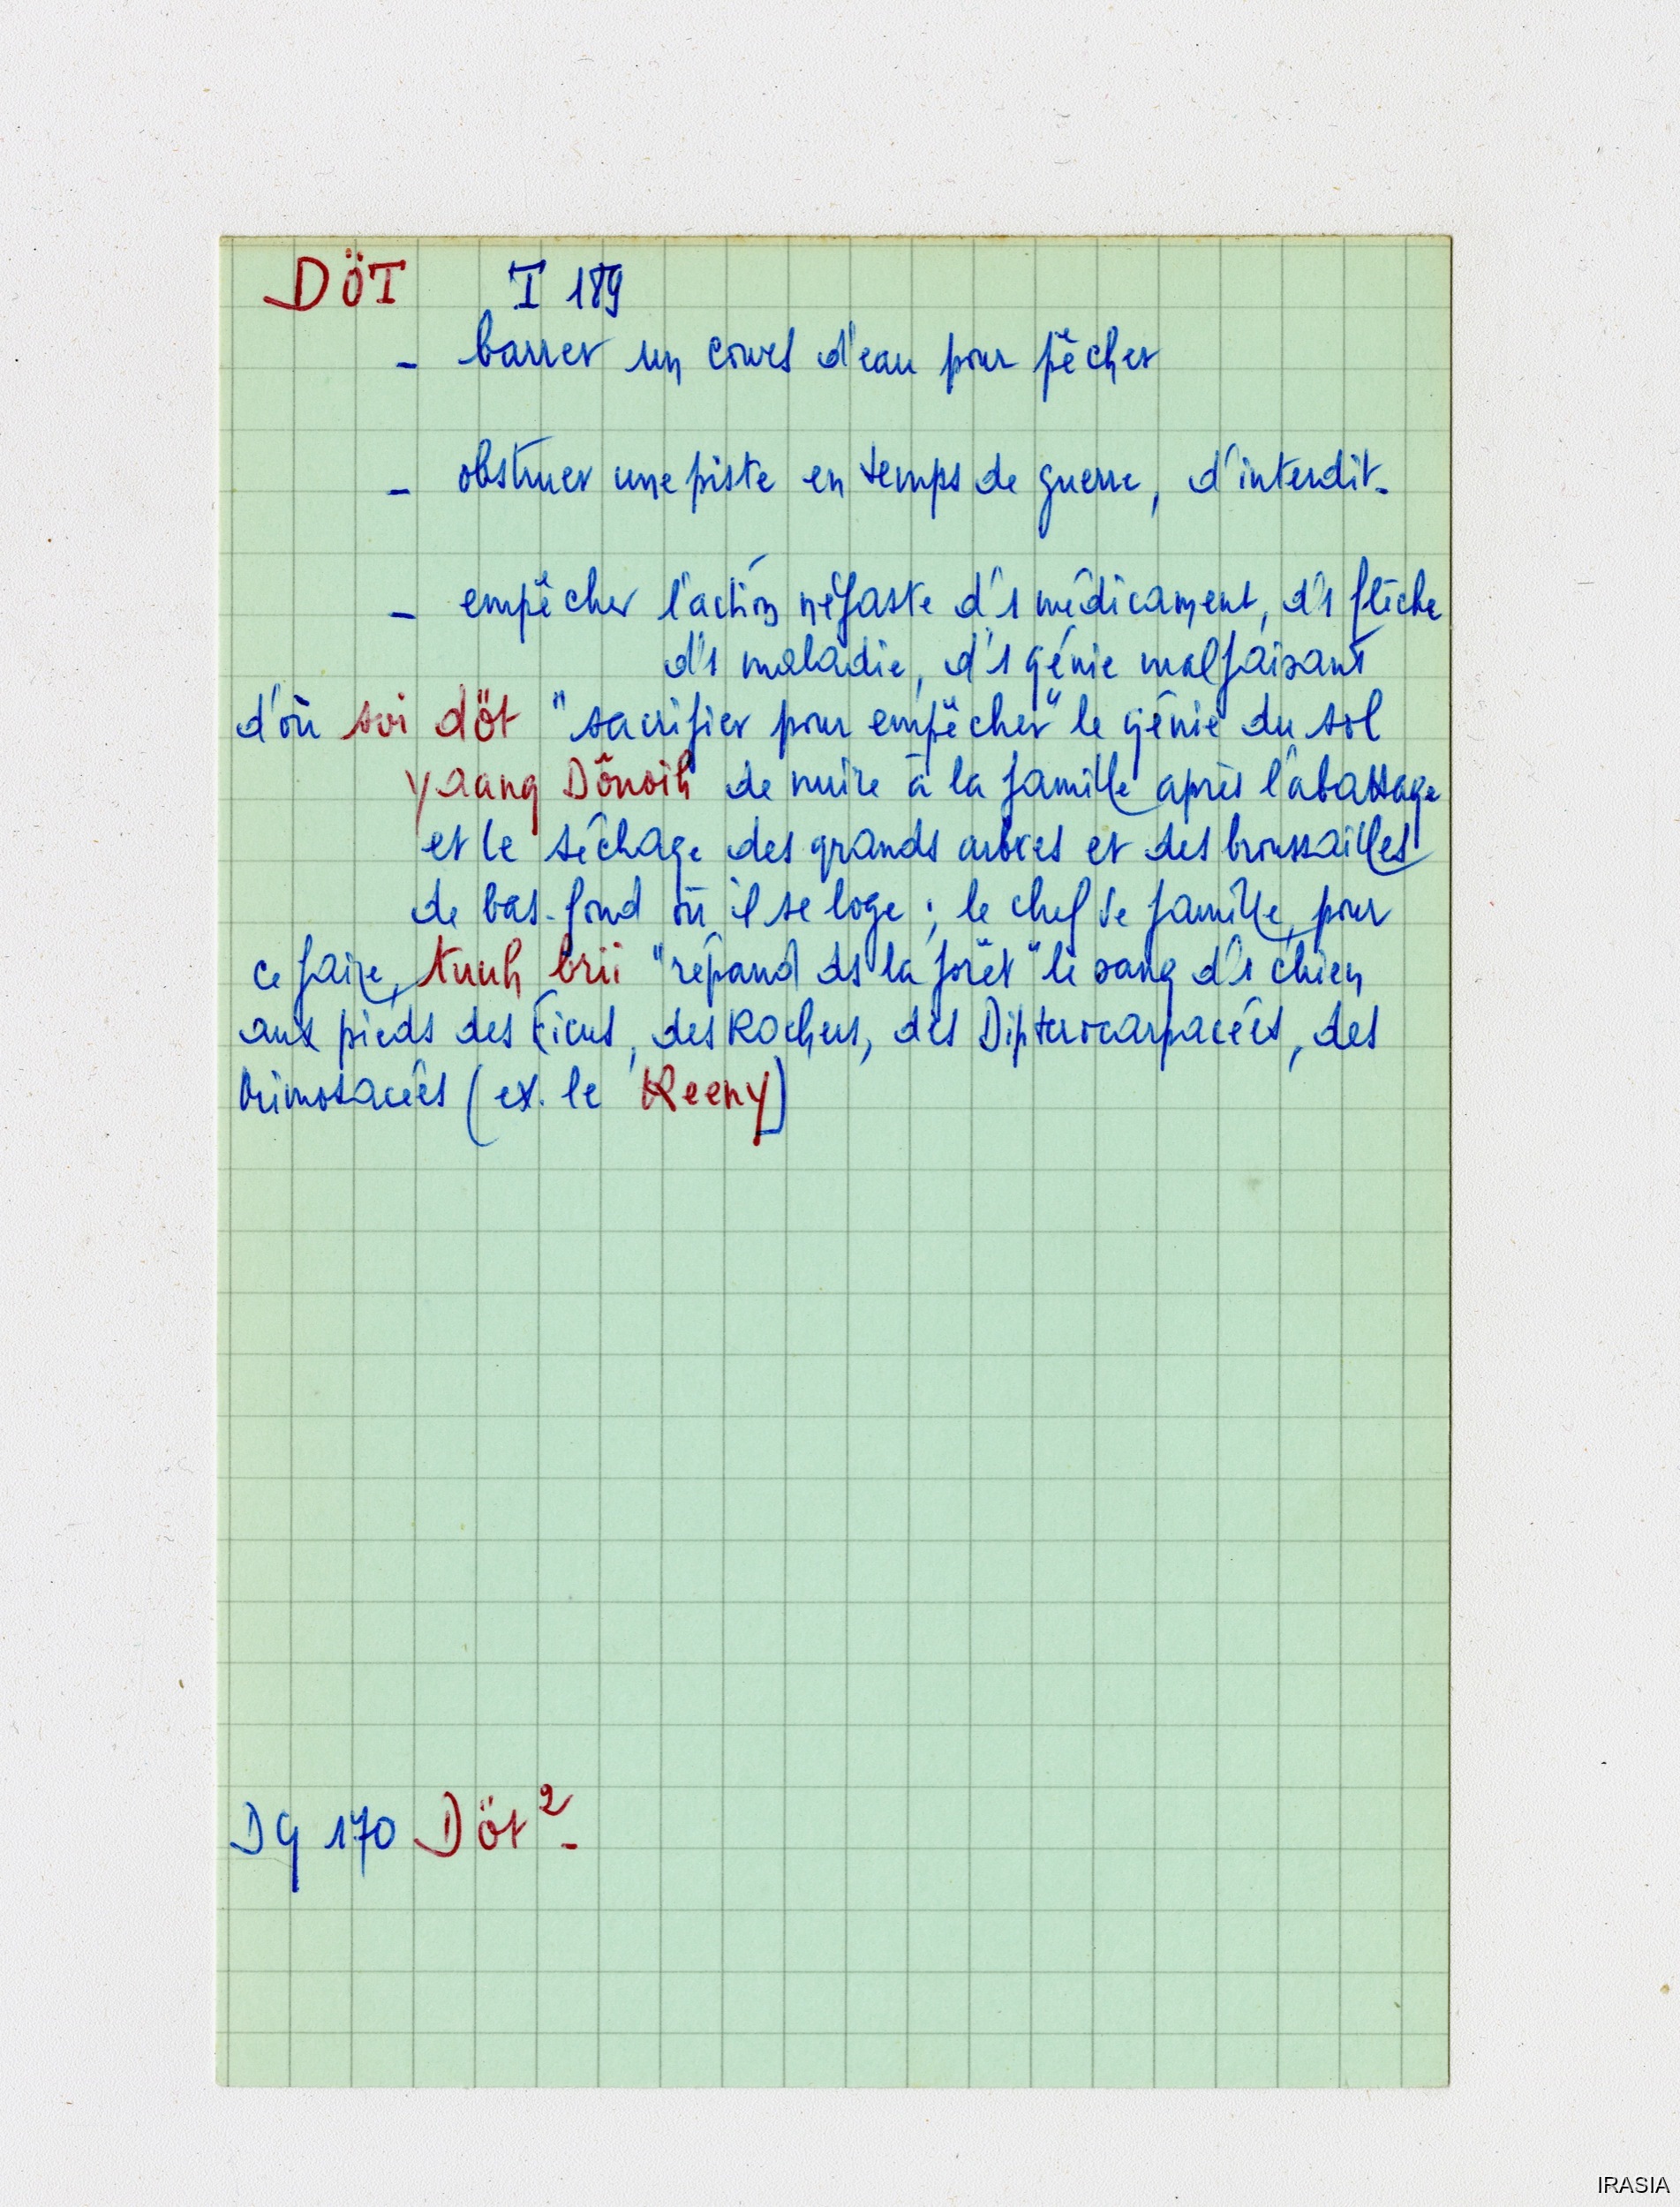 DÖT I 189
- barrer un cours d'eau pour pêcher
- obstruer une piste en temps de guerre, d'interdit.
- empêcher l'action néfaste d'1 médicament, d'1 flèche
d'1 maladie, d'1 génie malfaisant
d'où soi döt "sacrifier pour empêcher" le génie du sol
yaang Dônoih de nuire à la famille après l'abattage
et le séchage des grands arbres et des broussailles
de bas-fond où il se loge ; le chef de famille, pour
ce faire, tuuh brii "répand ds la forêt" le sang d'1 chien
aux pieds des Ficus, des Rochers, des Dipterocarpacées, des
Mimosacées (ex. le Reeny)
DG 170 Döt² -
IRASIA